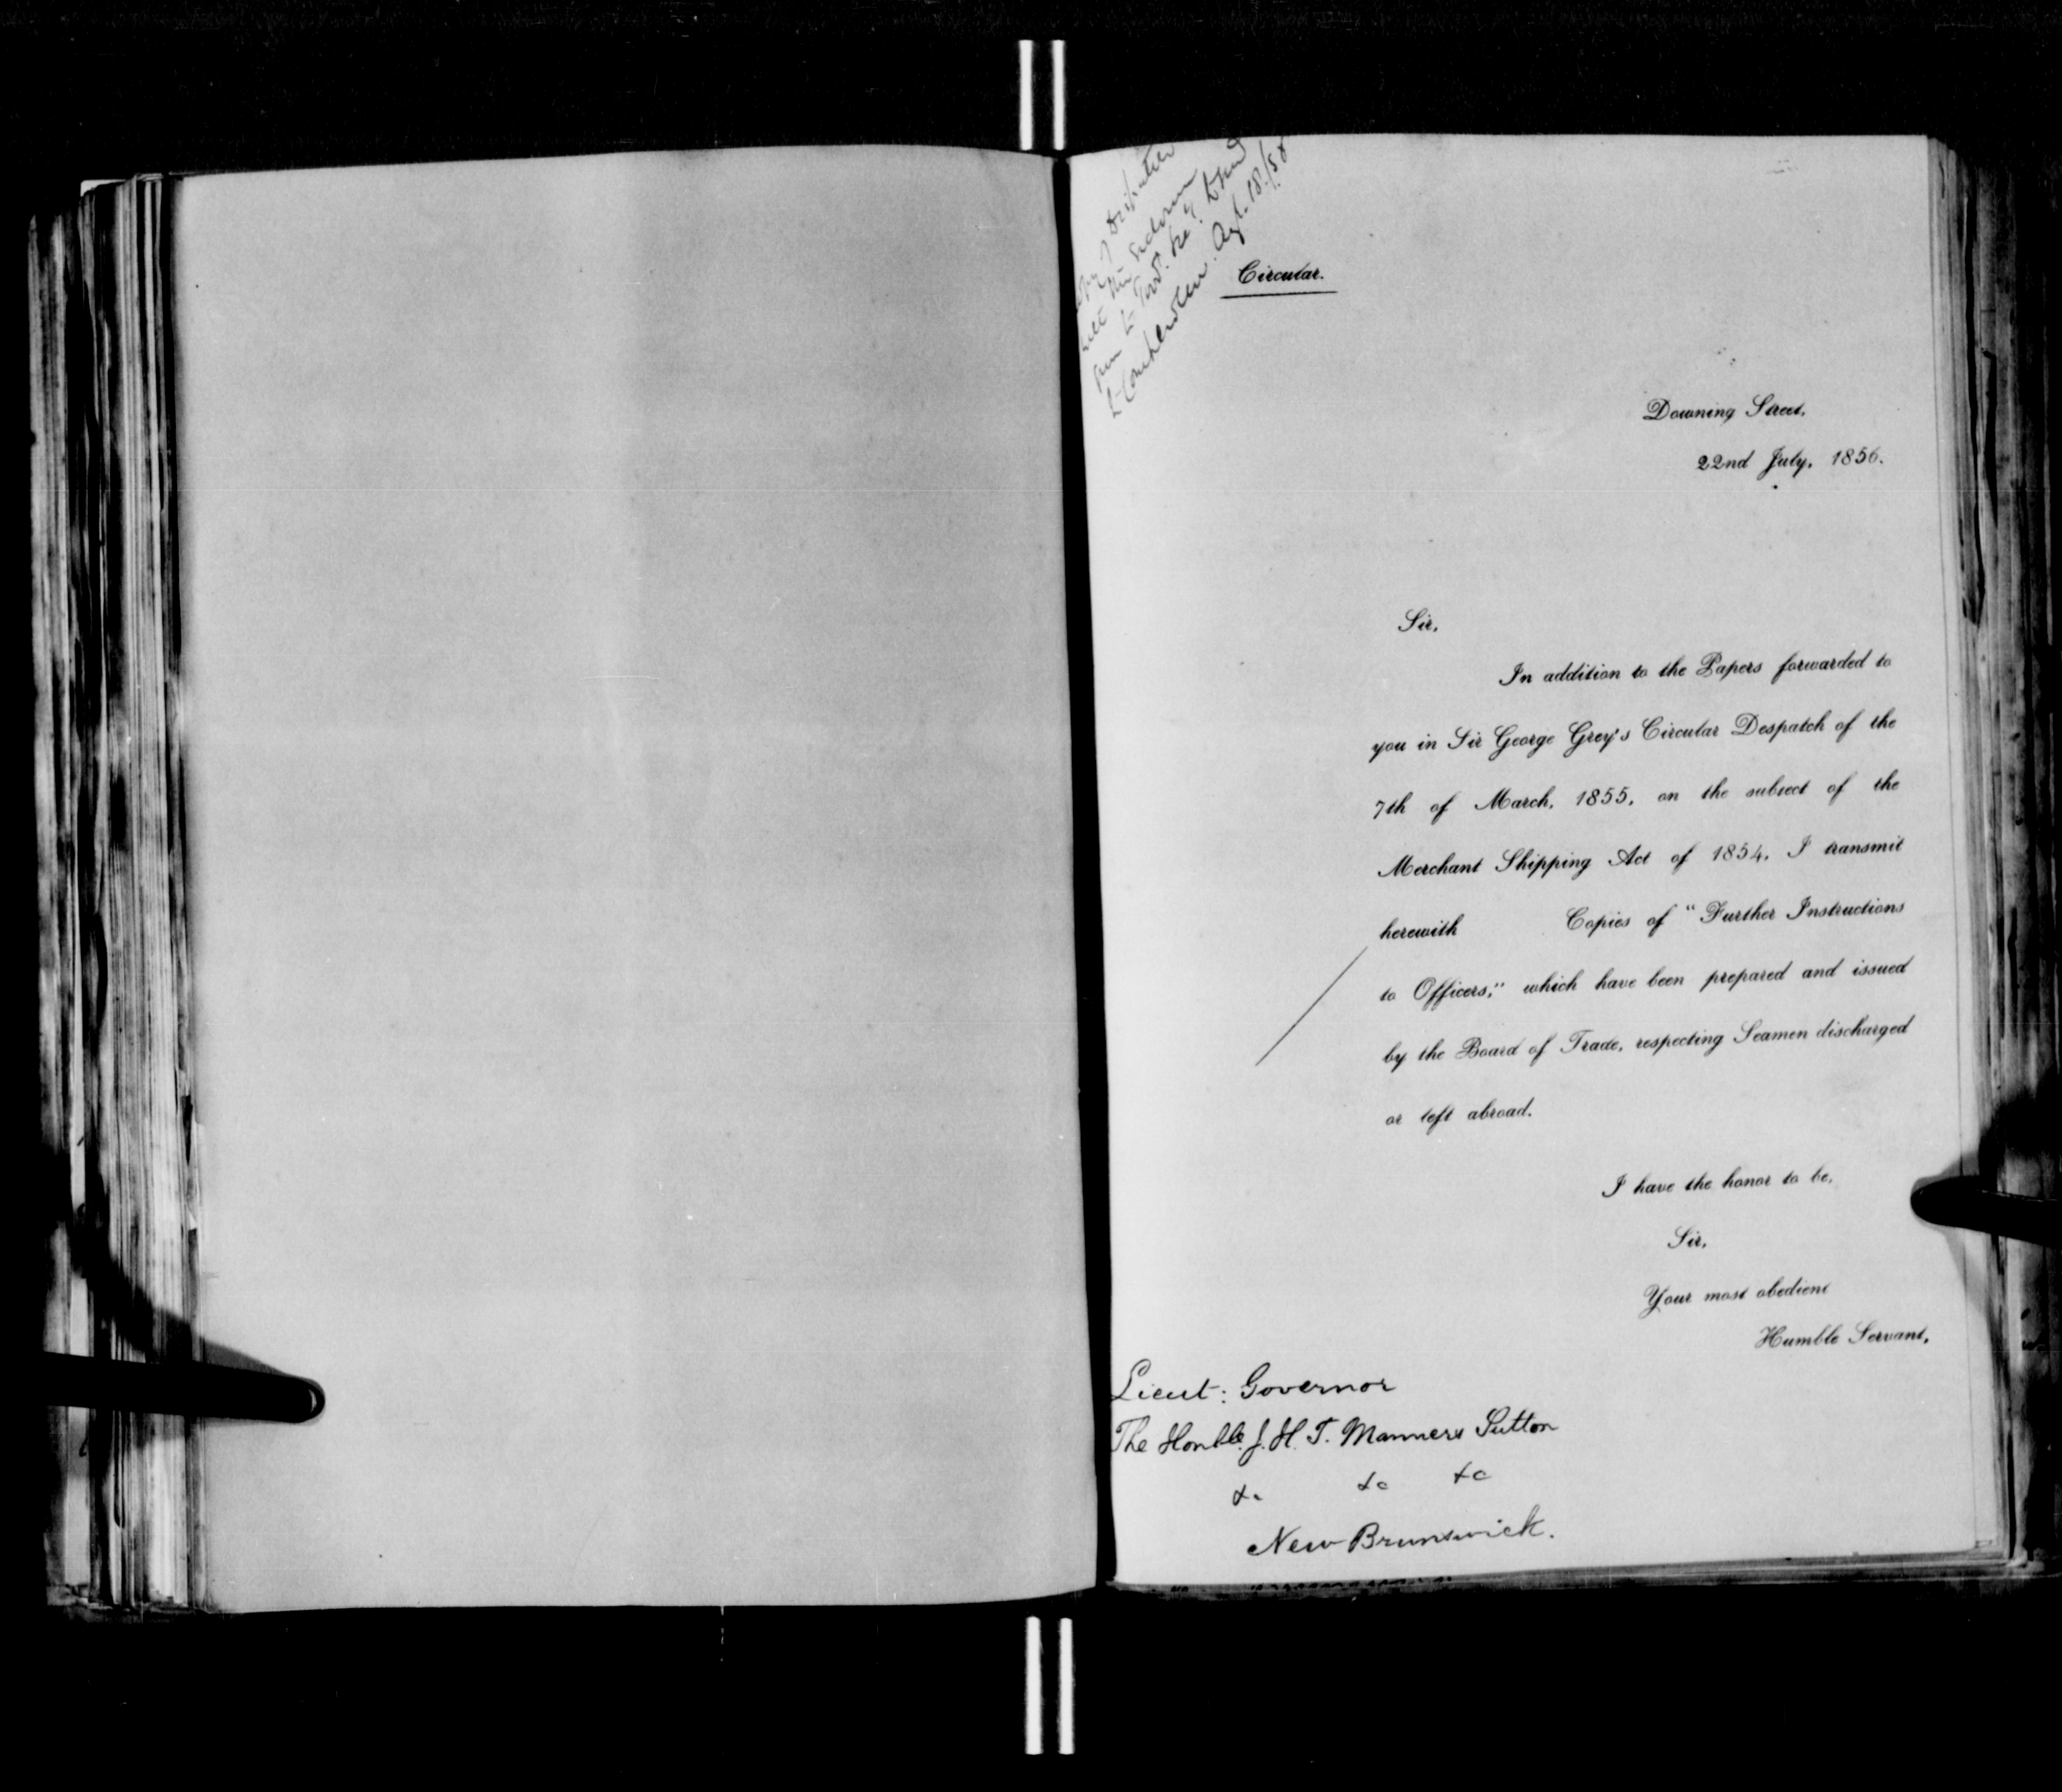 Copy of Despatch
with
to Prov. Sec'y
to Comptroller. Augt. 18/56
Circular.
Downing Street,
22nd July, 1856.
Sir,
In addition to the Papers forwarded to
you in Sir George Grey's Circular Despatch of the
7th of March, 1855, on the subject of the
Merchant Shipping Act of 1854, I transmit
herewith Copies of "Further Instructions
to Officers," which have been prepared and issued
by the Board of Trade, respecting Seamen discharged
or left abroad.
I have the honor to be,
Sir,
Your most obedient
Humble Servant,
Lieut: Governor
The Honble. J. H. T. Manners Sutton
&c &c &c
New Brunswick.